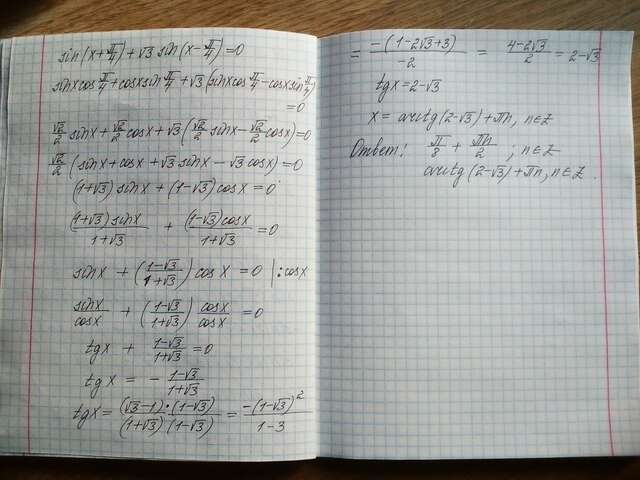 sin(x+π/4)+√3 sin(x-π/4)=0
sinxcos π/4+cosxsin π/4+√3(sinxcos π/4-cosxsin π/4)
=0
√2/2 sinx+√2/2 cosx+√3(√2/2 sinx-√2/2 cosx)=0
√2/2(sinx+cosx+√3sinx-√3cosx)=0
(1+√3)sinx+(1-√3)cosx=0
(1+√3)sinx/1+√3 + (1-√3)cosx/1+√3 =0
sinx + (1-√3/1+√3) cosx =0 |:cosx
sinx/cosx + (1-√3/1+√3) cosx/cosx =0
tgx + 1-√3/1+√3 =0
tgx = - 1-√3/1+√3
tgx= (√3-1)·(1-√3)/(1+√3)(1-√3) = -(1-√3)²/1-3
= -(1-2√3+3)/-2 = 4-2√3/2 =2-√3
tgx=2-√3
x= arctg(2-√3)+πn, n∈Z
Ответ: π/8 + πn/2 ; n∈Z
arctg(2-√3)+πn, n∈Z.